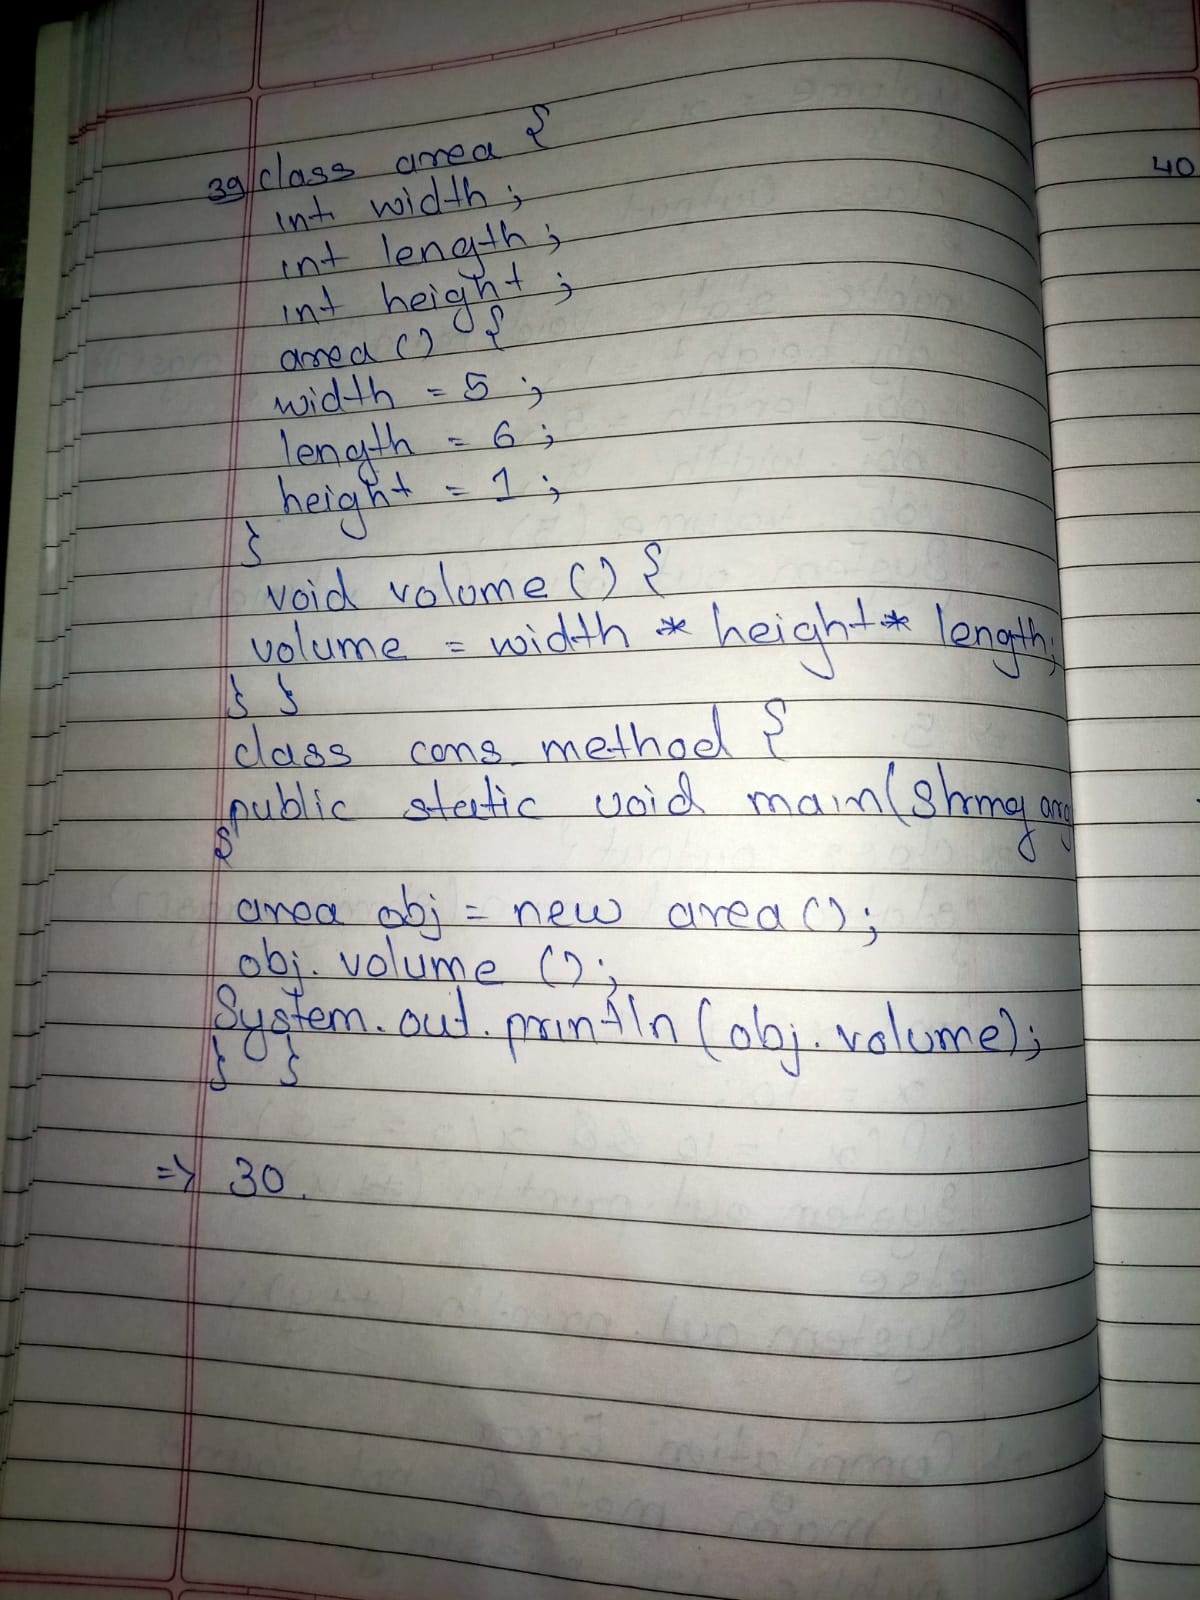 39 class area {
int width;
int length;
int height;
area () {
width = 5;
length = 6;
height = 1;
}
void volume () {
volume = width * height * length;
} }
class cons_method {
public static void main(String arg
{
area obj = new area();
obj. volume ();
System.out.println (obj. volume);
} }
=> 30.
40